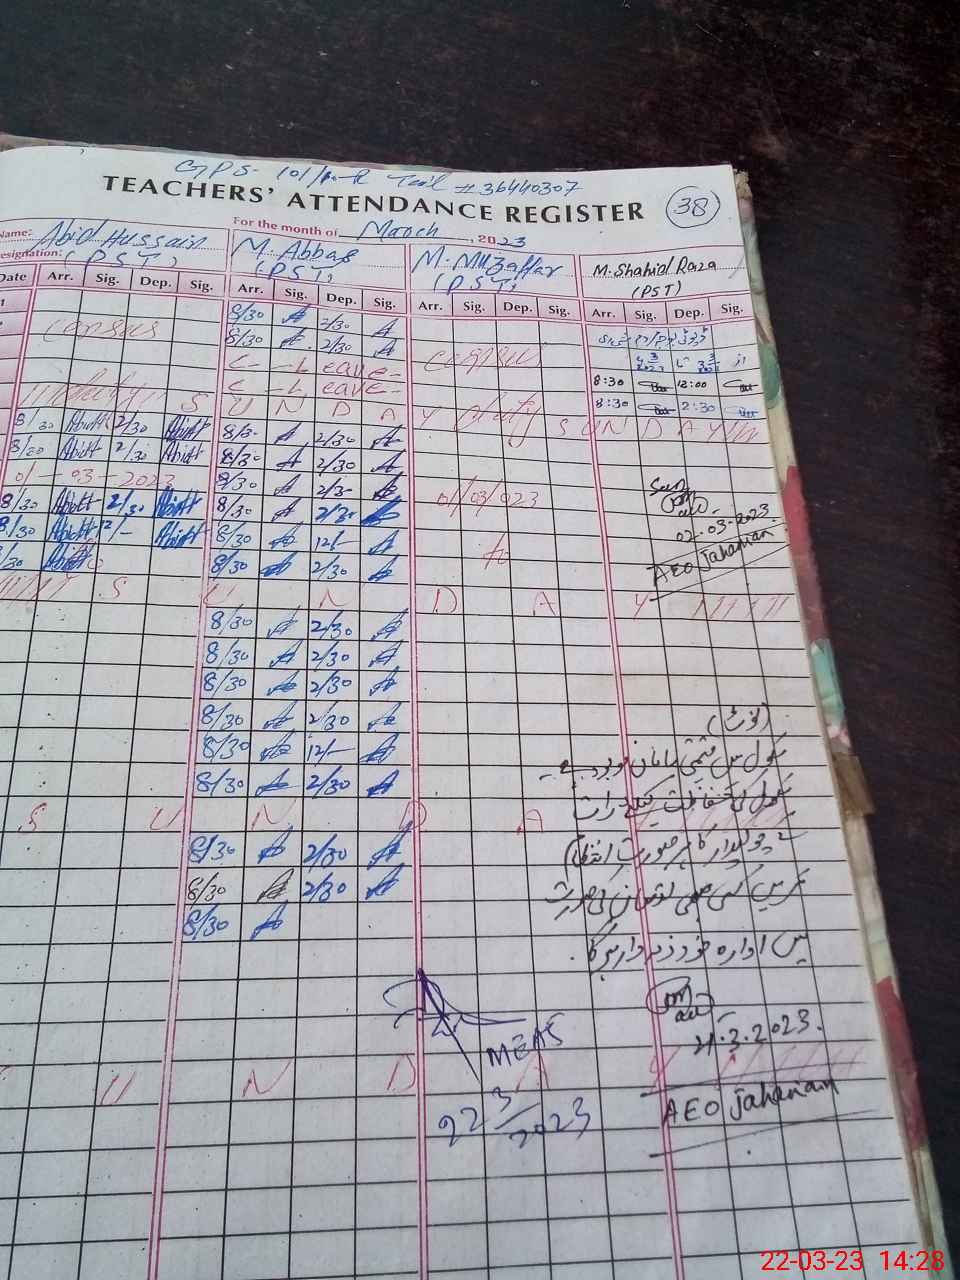 GPS- 101/10-R Teil #36440307
TEACHERS' ATTENDANCE REGISTER 38
Name: Abid Hussain For the month of March, 2023
Designation: (PST) M. Abbas (PST) M. Muzaffar (PST) M. Shahid Raza (PST)
Date Arr. Sig. Dep. Sig. Arr. Sig. Dep. Sig. Arr. Sig. Dep. Sig. Arr. Sig. Dep. Sig.
8/30 2/30
Census 8/30 2/30 Census
C- -Leave-
8:30 12:00
C- -Leave-
8:30 2:30
S U N D A Y S U N D A Y
8/30 2/30 8/30 2/30
8/30 2/30 8/30 2/30
01-03-2023 8/30 2/30 01/03/023
8/30 2/30 8/30 2/30
02.03.2023
8/30 12/- 8/30 12/-
AEO Jahanian
8/30 8/30 2/30
S U N D A Y
8/30 2/30
8/30 2/30
8/30 2/30
8/30 2/30
(نوٹ)
8/30 12/-
سکول میں قیمتی سامان موجود ہے۔
8/30 2/30
سکول کی حفاظت کیلئے رات
S U N D A
8/30 2/30
کے چوکیدار کا ہر صورت انتظام
8/30 2/30
کریں کسی بھی نقصان کی صورت
8/30
میں ادارہ خود ذمہ دار ہوگا۔
MEAS
21.3.2023.
U N D A Y
22/3/2023
AEO Jahanian
22-03-23 14:28